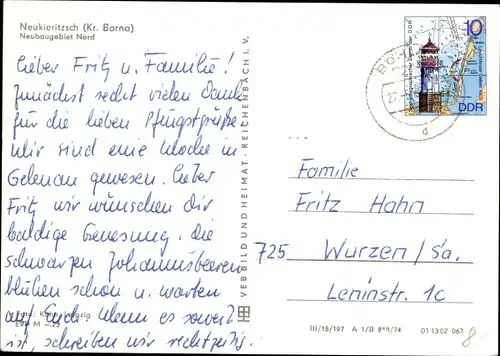 Neukieritzsch (Kr. Borna)
Neubaugebiet Nord
Lieber Fritz u. Familie!
Zunächst recht vielen Dank
für die lieben Pfingstgrüße
Wir sind eine Woche in
Gelenau gewesen. Lieber
Fritz wir wünschen dir
baldige Genesung. Die
schwarzen Johannisbeeren
blühen schon u. warten
auf Euch. Wenn es soweit
ist, schreiben wir rechtzeitig.
Foto: Leipzig
EVP M
VEB BILD UND HEIMAT · REICHENBACH I. V.
10
DDR
27.
d
Familie
Fritz Hahn
725 Wurzen/Sa.
Leninstr. 1c
III/18/197 A 1/B 811/74 01 13 02 067
8